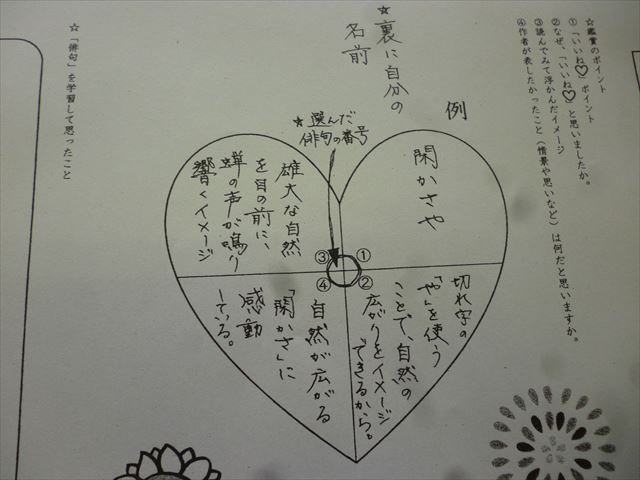 ☆鑑賞のポイント
①「いいね♡」ポイント
②なぜ、「いいね♡」と思いましたか。
③読んでみて浮かんだイメージ
④作者が表したかったこと（情景や思いなど）は何だと思いますか。
例
★裏に自分の
名前
★選んだ
俳句の番号
①
閑かさや
②
切れ字の
「や」を使う
ことで、自然の
広がりをイメージ
できるから。
③
雄大な自然
を目の前に、
蝉の声が鳴り
響くイメージ
④
自然が広がる
「閑かさ」に
感動
している。
☆「俳句」を学習して思ったこと